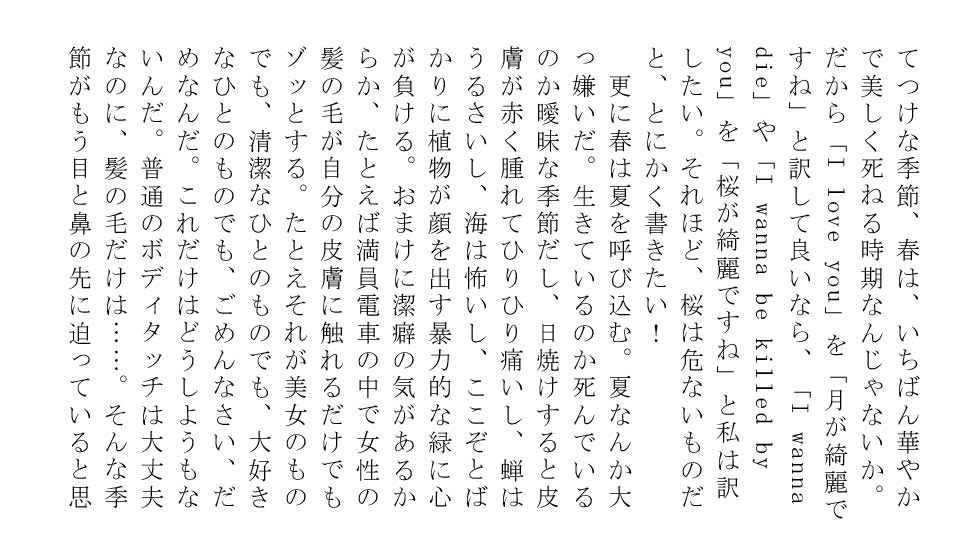 てつけな季節、春は、いちばん華やか
で美しく死ねる時期なんじゃないか。
だから「I love you」を「月が綺麗で
すね」と訳して良いなら、「I wanna
die」や「I wanna be killed by
you」を「桜が綺麗ですね」と私は訳
したい。それほど、桜は危ないものだ
と、とにかく書きたい！
　更に春は夏を呼び込む。夏なんか大
っ嫌いだ。生きているのか死んでいる
のか曖昧な季節だし、日焼けすると皮
膚が赤く腫れてひりひり痛いし、蝉は
うるさいし、海は怖いし、ここぞとば
かりに植物が顔を出す暴力的な緑に心
が負ける。おまけに潔癖の気があるか
らか、たとえば満員電車の中で女性の
髪の毛が自分の皮膚に触れるだけでも
ゾッとする。たとえそれが美女のもの
でも、清潔なひとのものでも、大好き
なひとのものでも、ごめんなさい、だ
めなんだ。これだけはどうしようもな
いんだ。普通のボディタッチは大丈夫
なのに、髪の毛だけは……。そんな季
節がもう目と鼻の先に迫っていると思